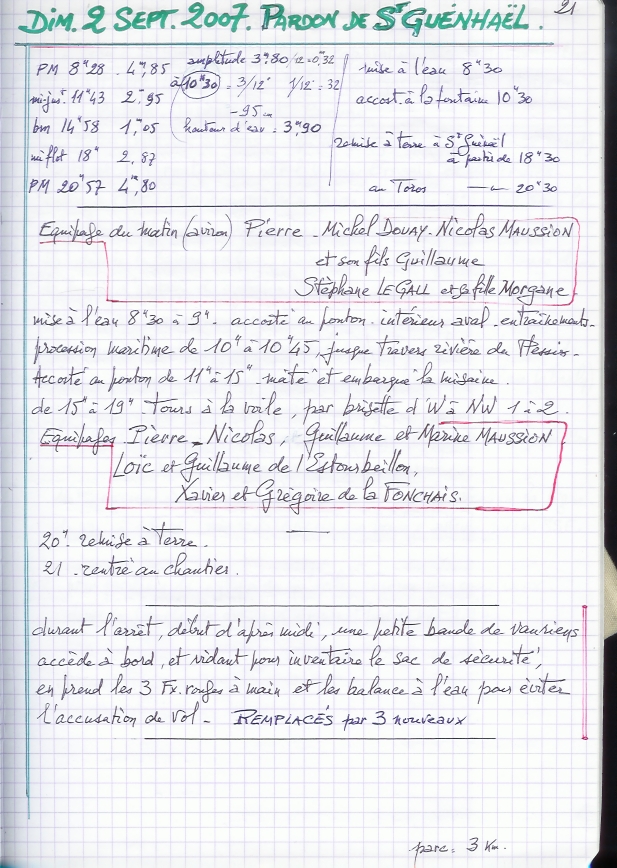 21
DIM. 2 SEPT. 2007. PARDON DE St GUÉNHAËL.
PM 8h28 . 4m,85
mi-jus. 11h43 2m.95
bm 14h58 1m,05
mi flot 18h 2,87
PM 20h57 4m,80
amplitude 3m80/12=0m,32
à 10h30 = 3/12 1/12 = 32
-95 cm
hauteur d'eau = 3m,90
mise à l'eau 8h30
accost. à la fontaine 10h30
remise à terre à St Guénaël
à partir de 18h30
au Toros —"— 20h30
Equipage du matin (aviron) Pierre - Michel DOUAY - Nicolas MAUSSION
et son fils Guillaume
Stéphane LE GALL et sa fille Morgane
mise à l'eau 8h30 à 9h - accosté au ponton intérieur aval - entraînements -
procession maritime de 10h à 10h45, jusque travers rivière du Plessis -
Accosté au ponton de 11h à 15h - mâté et embarqué la misaine.
de 15h à 19h - tours à la voile, par brisette d'W à NW 1 à 2.
Equipages Pierre - Nicolas, Guillaume et Marine MAUSSION
Loïc et Guillaume de l'Estourbeillon,
Xavier et Grégoire de la FONCHAIS.
20h. remise à terre.
21 . rentré au chantier.
durant l'arrêt, début d'après midi, une petite bande de vauriens
accède à bord, et vidant pour inventaire le sac de sécurité,
en prend les 3 Fx. rouges à main et les balance à l'eau pour éviter
l'accusation de vol - REMPLACÉS par 3 nouveaux
parc. = 3 Km.